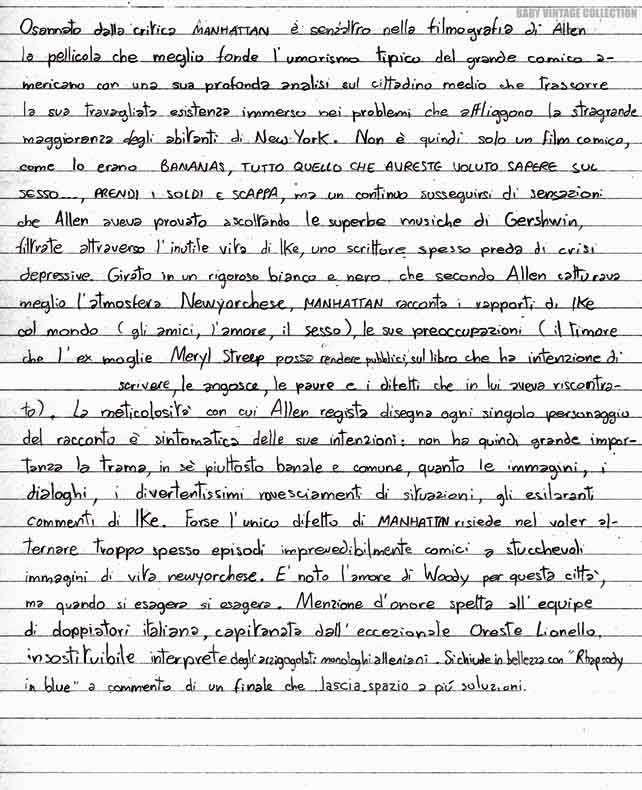 BABY VINTAGE COLLECTION
Osannato dalla critica MANHATTAN è senz'altro nella filmografia di Allen
la pellicola che meglio fonde l'umorismo tipico del grande comico a-
mericano con una sua profonda analisi sul cittadino medio che trascorre
la sua travagliata esistenza immerso nei problemi che affliggono la stragrande
maggioranza degli abitanti di New York. Non è quindi solo un film comico,
come lo erano BANANAS, TUTTO QUELLO CHE AVRESTE VOLUTO SAPERE SUL
SESSO..., PRENDI I SOLDI E SCAPPA, ma un continuo susseguirsi di sensazioni
che Allen aveva provato ascoltando le superbe musiche di Gershwin,
filtrate attraverso l'inutile vita di Ike, uno scrittore spesso preda di crisi
depressive. Girato in un rigoroso bianco e nero, che secondo Allen catturava
meglio l'atmosfera Newyorchese, MANHATTAN racconta i rapporti di Ike
col mondo (gli amici, l'amore, il sesso), le sue preoccupazioni (il timore
che l'ex moglie Meryl Streep possa rendere pubblici, sul libro che ha intenzione di
scrivere, le angosce, le paure e i difetti che in lui aveva riscontra-
to). La meticolosità con cui Allen regista disegna ogni singolo personaggio
del racconto è sintomatica delle sue intenzioni: non ha quindi grande impor-
tanza la trama, in sè piuttosto banale e comune, quanto le immagini, i
dialoghi, i divertentissimi rovesciamenti di situazioni, gli esilaranti
commenti di Ike. Forse l'unico difetto di MANHATTAN risiede nel voler al-
ternare troppo spesso episodi imprevedibilmente comici a stucchevoli
immagini di vita newyorchese. E' noto l'amore di Woody per questa città,
ma quando si esagera si esagera. Menzione d'onore spetta all'equipe
di doppiatori italiana, capitanata dall'eccezionale Oreste Lionello,
insostituibile interprete degli arzigogolati monologhi alleniani. Si chiude in bellezza con "Rhapsody
in blue" a commento di un finale che lascia spazio a più soluzioni.